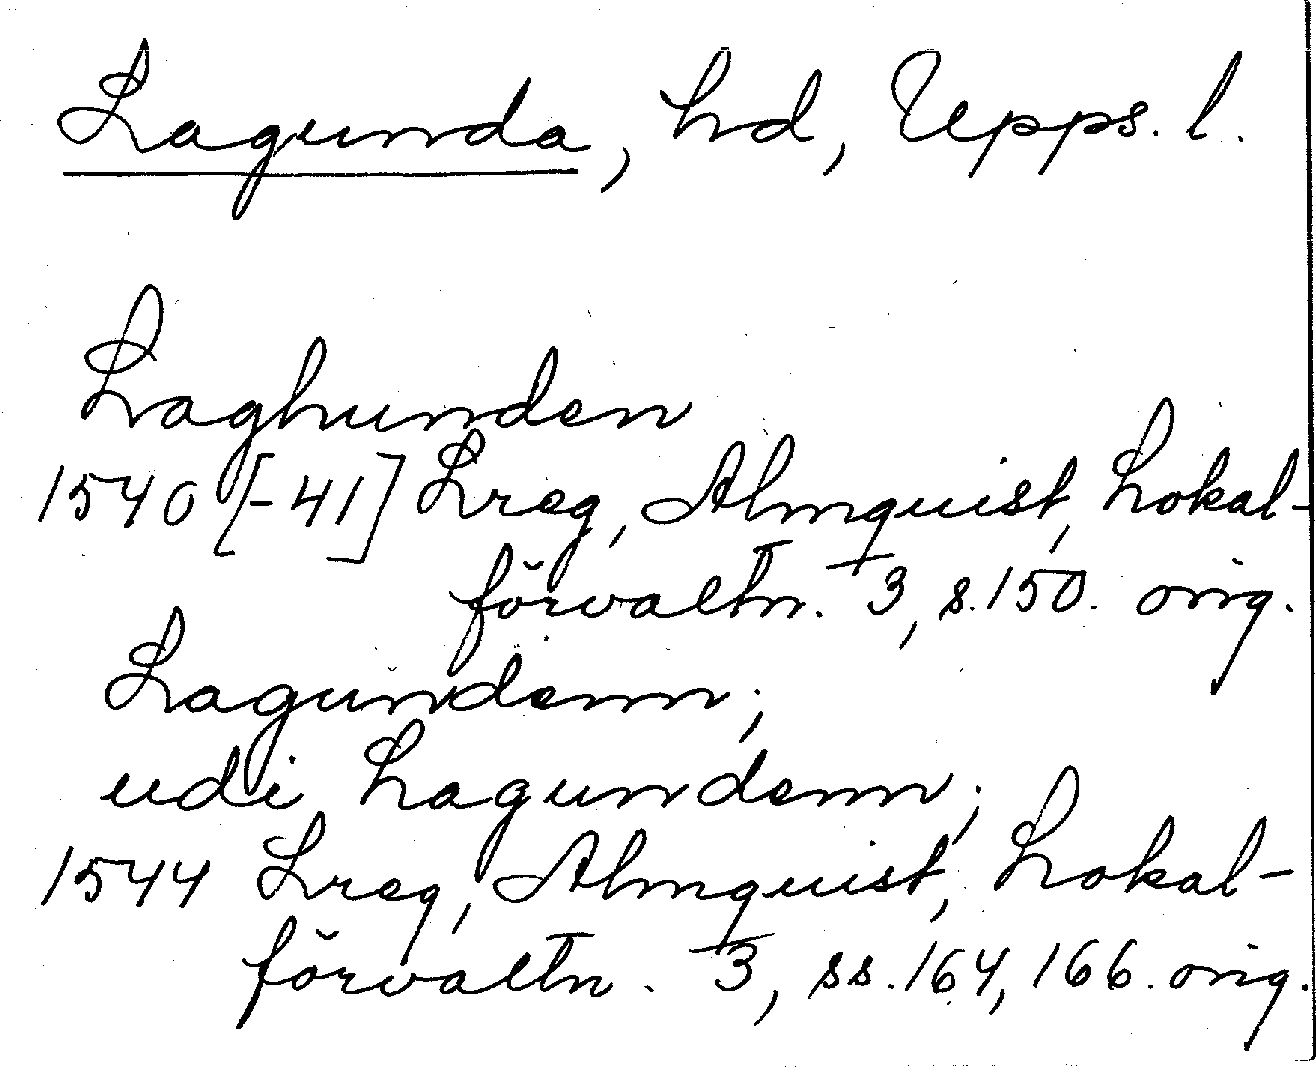 Lagunda, hd, Upps. l.
Laghunden
1540 [-41] Lreg, Almquist, Lokal-
förvaltn. 3, s. 150. orig.
Lagundenn;
udi Lagundenn;
1544 Lreg, Almquist, Lokal-
förvaltn. 3, ss. 164, 166. orig.